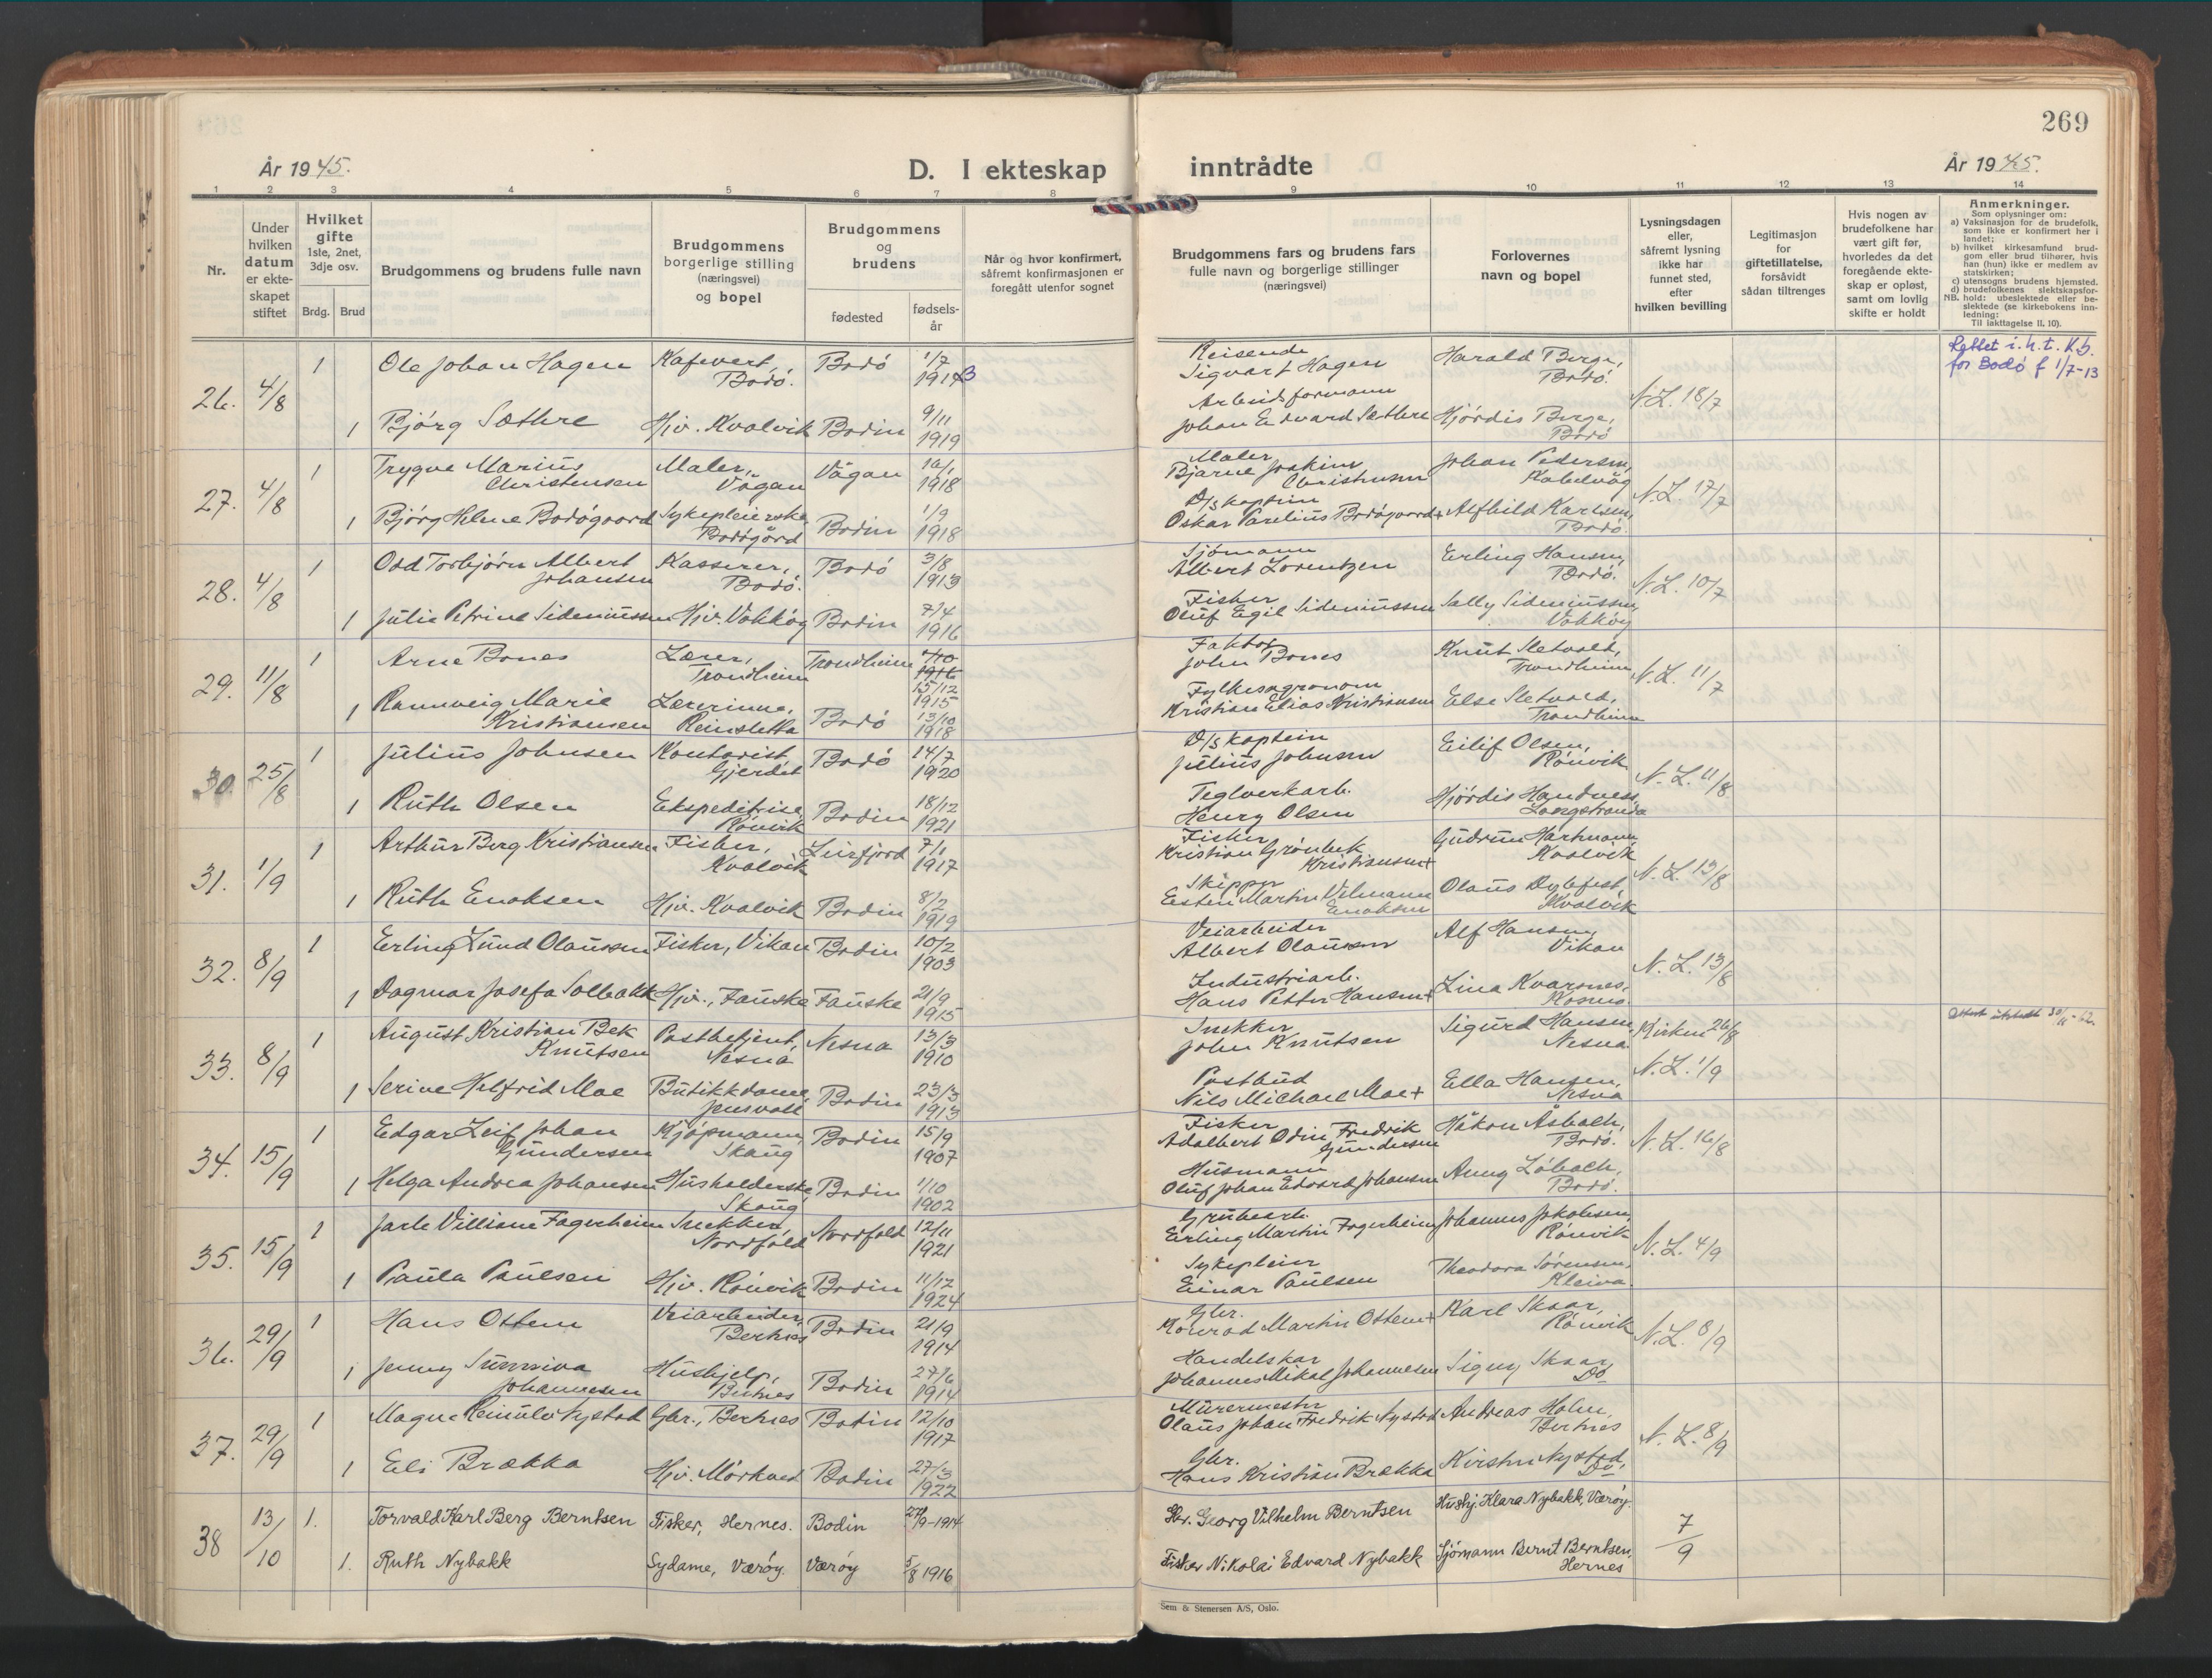 269
År 1945.
D. I ekteskap inntrådte
År 1945.
1 2 3 4 5 6 7 8 9 10 11 12 13 14
Nr.
Under hvilken datum er ekteskapet stiftet
Hvilket gifte
1ste, 2net, 3dje osv.
Brdg. Brud
Brudgommens og brudens fulle navn
Brudgommens borgerlige stilling (næringsvei) og bopel
Brudgommens og brudens
fødested
fødsels-år
Når og hvor konfirmert, såfremt konfirmasjonen er foregått utenfor sognet
Brudgommens fars og brudens fars fulle navn og borgerlige stillinger (næringsvei)
Forlovernes navn og bopel
Lysningsdagen eller, såfremt lysning ikke har funnet sted, efter hvilken bevilling
Legitimasjon for giftetillatelse, forsåvidt sådan tiltrenges
Hvis nogen av brudefolkene har vært gift før, hvorledes da det foregående ekteskap er opløst, samt om lovlig skifte er holdt
Anmerkninger.
Som oplysninger om:
a) Vaksinasjon for de brudefolk, som ikke er konfirmert her i landet;
b) hvilket kirkesamfund brudgom eller brud tilhører, hvis han (hun) ikke er medlem av statskirken;
c) utensogns brudens hjemsted.
d) brudefolkenes slektskapsfor-
NB. hold: ubeslektede eller beslektede (se kirkebokens innledning:
Til iakttagelse II, 10).
26. 4/8 1 Ole Johan Hagen Kafevert, Bodø. Bodø 1/7 1913 Reisende Sigvart Hagen Harald Berge, Bodø. N.L. 18/7 Rettet i.h.t. Kb. for Bodø f 1/7-13
1 Bjørg Sæthre Hjv. Kvalvik Bodin 9/11 1919 Arbeidsformann Johan Edvard Sæthre Hjørdis Berge, Bodø
27. 4/8 1 Trygve Marius Christensen Maler, Vågan Vågan 1918 Maler Bjarne Joakim Christensen Johan Pedersen, Kabelvåg N.L. 17/7
1 Bjørg Helene Bodøgaard Sykepleierske Bodøgård Bodin 1/9 1918 D/S kaptein Oskar Parelius Bodøgaard+ Alfhild Karlsen, Bodø.
28. 4/8 1 Odd Torbjørn Albert Johansen Kasserer, Bodø. Bodø 3/8 1913 Sjømann Albert Lorentzen Erling Hansen, Bodø. N.L. 10/7
1 Julie Petrine Sideniussen Hjv. Vokkøy Bodin 7/4 1916 Fisker Oluf Egil Sideniussen Sally Sideniussen, Vokkøy
29. 11/8 1 Arne Bones Lærer, Trondheim Trondheim 15/12 1915 Faktor John Bones Knut Sletvold, Trondheim N.L. 11/7
1 Rannveig Marie Kristiansen Lærerinne, Reinsletta Bodø 13/10 1918 Fylkesagronom Kristian Elias Kristiansen Else Sletvold, Trondheim
30. 25/8 1 Julius Johnsen Kontorist, Gjerdet Bodø 14/7 1920 D/S kaptein Julius Johnsen Eilif Olsen, Rønvik N.L. 11/8
1 Ruth Olsen Ekspeditrise, Rønvik Bodin 18/12 1921 Teglverkarb. Henry Olsen Hjørdis Handnes, Langstranda
31. 1/9 1 Arthur Berg Kristiansen Fisker, Kvalvik Leirfjord 7/1 1917 Fisker Kristian Grønbek Kristiansen+ Gudrun Hartmann, Kvalvik N.L. 13/8
1 Ruth Enoksen Hjv. Kvalvik Bodin 8/2 1919 Skipper Esten Martin Vilmann Enoksen Olaus Dybfest, Kvalvik
32. 8/9 1 Erling Lund Olaussen Fisker, Vikan Bodin 10/2 1903 Veiarbeider Albert Olaussen Alf Hansen, Vikan N.L. 13/8
1 Dagmar Josefa Solbakk Hjv., Fauske Fauske 21/9 1915 Industriarb. Hans Petter Hansen+ Lina Kvarsnes, Kosmo.
33. 8/9 1 August Kristian Bek Knutsen Postbetjent, Nesna Nesna 13/3 1910 Snekker John Knutsen Sigurd Hansen, Nesna Kirken 26/8 Attest utstedt 30/11-62.
1 Serine Helfrid Moe Butikkdame, Jensvoll Bodin 23/3 1913 Postbud Nils Michael Moe+ Ella Hansen, Nesna N.L. 1/9
34. 15/9 1 Edgar Leif Johan Gundersen Kjøpmann, Skaug Bodin 15/9 1907 Fisker Adalbert Odin Fredrik Gundersen Håkon Åsbakk, Bodø. N.L. 16/8
1 Helga Andrea Johansen Husholderske Skaug Bodin 1/10 1902 Husmann Oluf Johan Edvard Johansen Anny Løbach, Bodø.
35. 15/9 1 Jarle Villiam Fagerheim Snekker, Nordfold Nordfold 12/11 1921 Grubearb. Erling Martin Fagerheim Johannes Jakobsen, Rønvik N.L. 4/9
1 Paula Paulsen Hjv. Rønvik Bodin 11/12 1924 Sykepleier Einar Paulsen Theodora Sørensen, Kleiva.
36. 29/9 1 Hans Ottem Veiarbeider, Bertnes Bodin 21/9 1914 Gbr. Konrad Martin Ottem+ Karl Skaar, Rønvik N.L. 8/9
1 Jenny Sunniva Johannesen Hushjelp, Bertnes Bodin 27/6 1914 Handelskar Johannes Mikal Johannesen Signy Skaar, Do
37. 29/9 1 Magne Reinulv Nystad Gbr., Bertnes Bodin 12/10 1917 Murermester Olaus Johan Fredrik Nystad Andreas Holm, Bertnes N.L. 8/9
1 Eli Brækka Hjv. Mørkved Bodin 27/3 1922 Gbr. Hans Kristian Brækka Kirsten Nystad, Do.
38 13/10 1. Torvald Karl Berg Berntsen Fisker, Hernes. Bodin 27/9-1914 Gbr. Georg Vilhelm Berntsen Hushj. Klara Nybakk, Værøy. 7/9
1. Ruth Nybakk Sydame, Værøy. Værøy 5/8 1916 Fisker Nikolai Edvard Nybakk Sjømann Bernt Berntsen, Hernes
Sem & Stenersen A/S, Oslo.